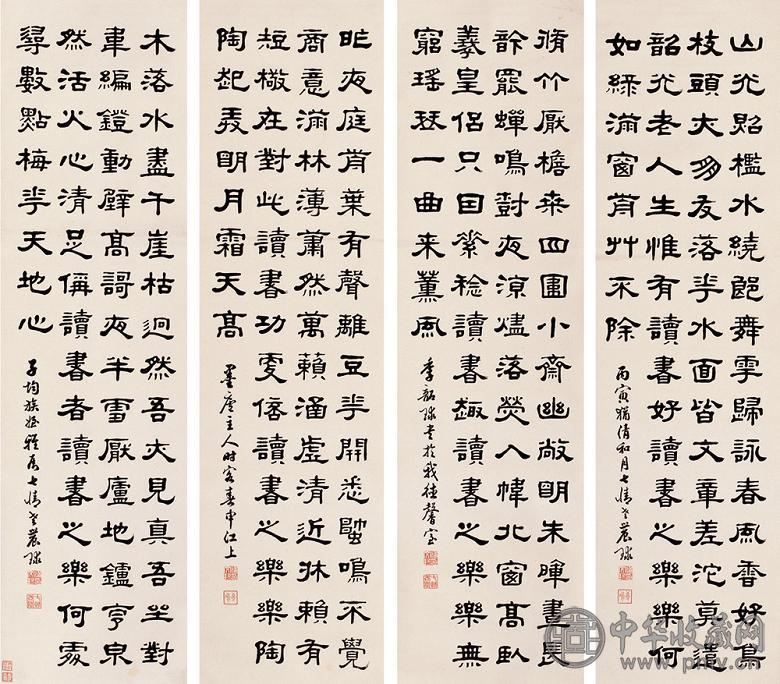 山光照檻水繞郎舞雩歸詠春風香好鳥
枝頭亦朋友落花水面皆文章差沱莫遣
韶光老人生惟有讀書好讀書之樂樂何
如綠滿窗前艸不除
丙寅猶清和月七情老農
脩竹厭檐桑四圍小齋幽敞明朱暉晝長
吟罷蟬鳴樹夜深燼落熒入幃北窗高臥
羲皇侶只因素稔讀書趣讀書之樂樂無
窮瑤琴一曲来薰風
季韶書於我德馨室
昨夜庭前葉有聲離豆花開悉蟀鳴不覺
商意滿林薄蕭然萬賴涵虛清近牀賴有
短檠在對此讀書功更倍讀書之樂樂陶
陶起弄明月霜天高
墨廬主人时客春申江上
木落水盡千崖枯迥然吾亦見真吾坐對
韋編鐙動壁高謌夜半雪厭廬地鑪亨泉
然活火心清足偁讀書者讀書之樂何處
尋數點梅花天地心
子均族姪雅屬七情老農
中华收藏网
www.pmv.cn